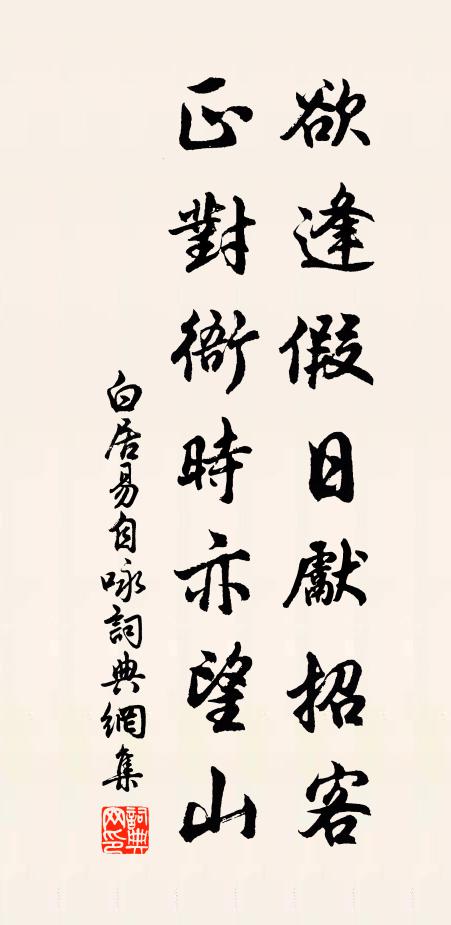 欲逢假日獻招客
正對衙時亦望山
白居易自咏詞典網集
詞典
网印